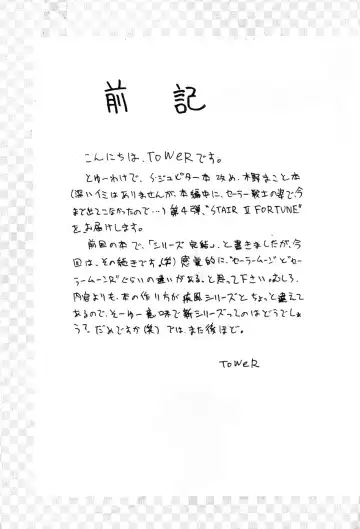 前記
こんにちは、TOWeRです。
とゆーわけで、S・ジュピター本改め、木野まこと本
(深いイミはありませんが、本編中に、セーラー戦士の姿で、今
まで出てこなかったので…)第4弾、"STAIR Ⅱ FORTUNE"
をお届けします。
前回の本で、「シリーズ完結」、と書きましたが、今
回は、その続きです。(笑)感覚的に、"セーラームーン"と"セー
ラームーンR"ぐらいの違いがある。と思って下さい。むしろ、
内容よりも、本の作り方が疾風シリーズと、ちょっと違えて
あるので、そーゆー意味で新シリーズってのはどうでしょ
う?だめですか(笑)では、また後ほど。
TOWeR